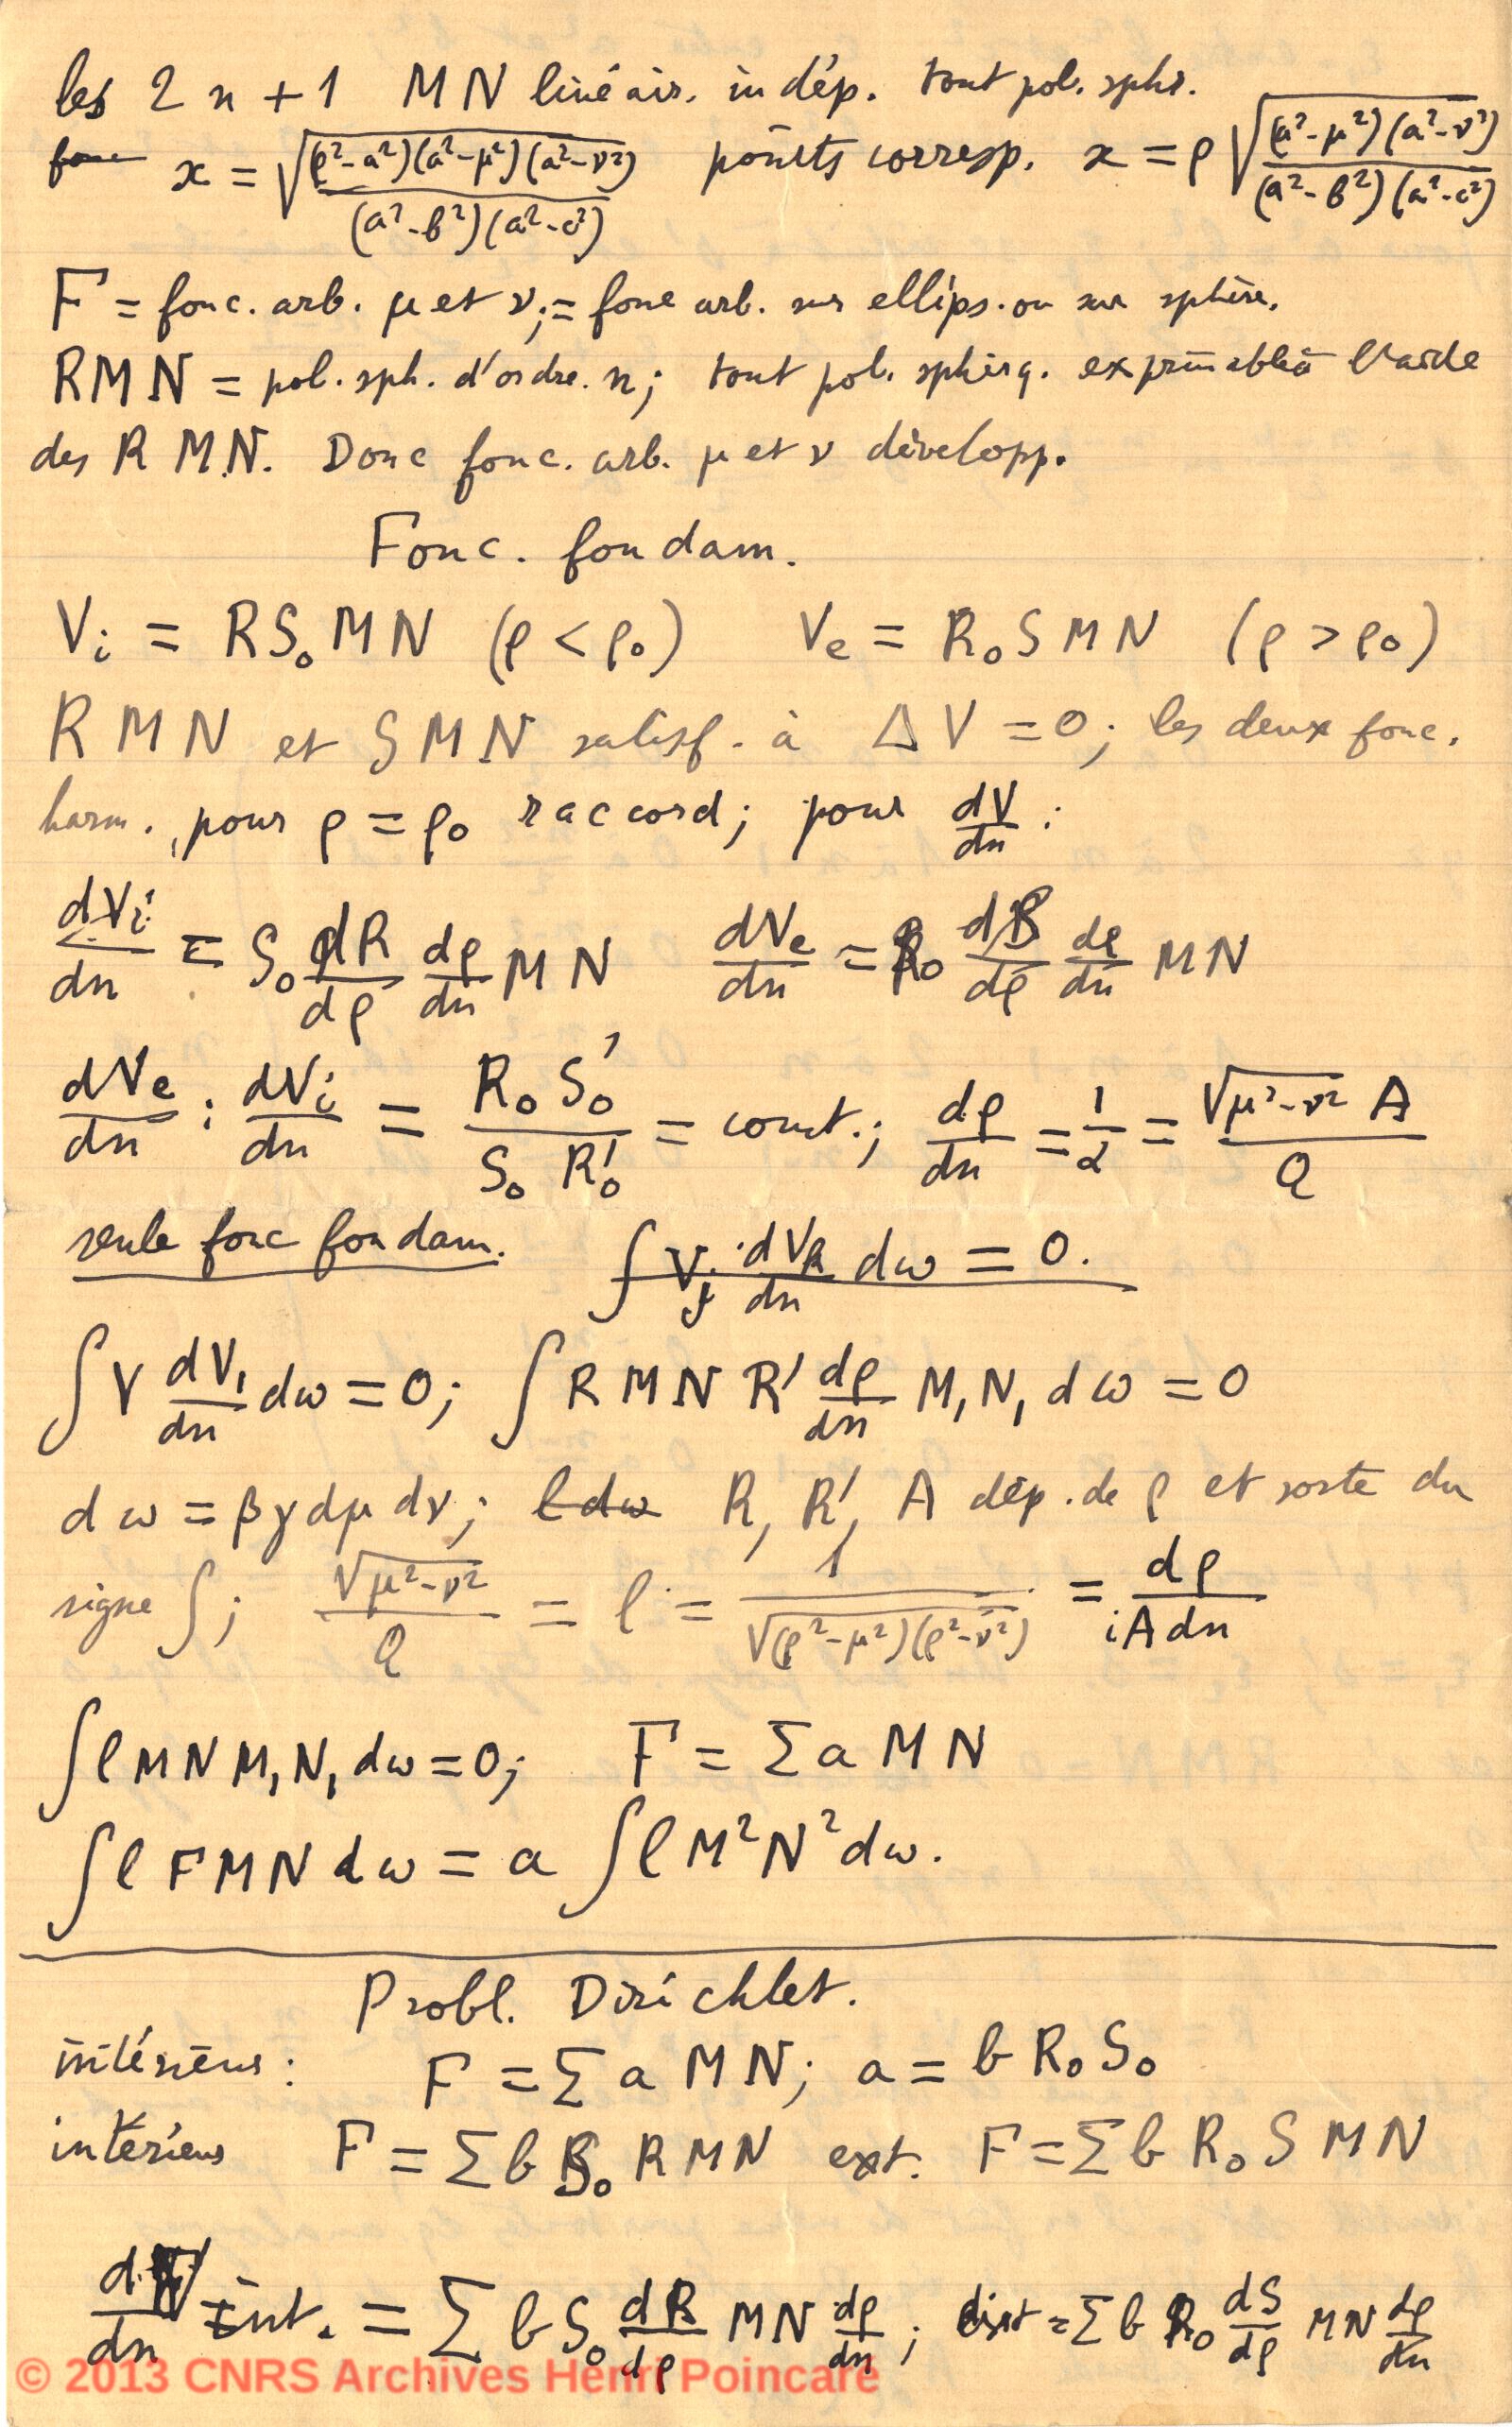 les 2n+1 MN linéair. indép. tout pol. sphr.
x = √((ρ²-a²)(a²-μ²)(a²-ν²) / (a²-b²)(a²-c²)) points corresp. x = ρ √((a²-μ²)(a²-ν²) / (a²-b²)(a²-c²))
F = fonc. arb. μ et ν; = fonc arb. sur ellips. ou sur sphère.
RMN = pol. sph. d'ordre n; tout pol. sphérq. exprimable à l'aide
des RMN. Donc fonc. arb. μ et ν développ.
Fonc. fondam.
V_i = RS₀MN (ρ < ρ₀) V_e = R₀SMN (ρ > ρ₀)
RMN et SMN satisf. à ΔV = 0; les deux fonc.
harm., pour ρ = ρ₀ raccord; pour dV/dn :
dV_i/dn = S₀ dR/dρ dρ/dn MN dV_e/dn = R₀ dS/dρ dρ/dn MN
dV_e/dn : dV_i/dn = R₀S₀'/S₀R₀' = const.; dρ/dn = 1/α = √(μ²-ν²) A/Q
seule fonc fondam. ∫ V_j dV_k/dn dω = 0.
∫ V dV₁/dn dω = 0; ∫ RMN R' dρ/dn M₁N₁ dω = 0
dω = βγ dμ dν; l dω R, R', A dép. de ρ et sorte du
signe ∫; √(μ²-ν²)/Q = l = 1/√((ρ²-μ²)(ρ²-ν²)) = dρ/iAdn
∫ l MN M₁N₁ dω = 0; F = Σ a MN
∫ l F MN dω = a ∫ l M²N² dω.
Probl. Dirichlet.
intérieur : F = Σ a MN; a = b R₀S₀
intérieur F = Σ b S₀ RMN ext. F = Σ b R₀ S MN
dF/dn int. = Σ b S₀ dR/dρ MN dρ/dn ; ext = Σ b R₀ dS/dρ MN dρ/dn
© 2013 CNRS Archives Henri Poincaré